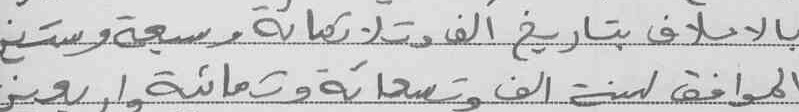 بالاملاف بتاريخ الف وثلاثمائة وسبعة وستين
الموافق لسنة الف وتسعمائة وثمانية واربعين